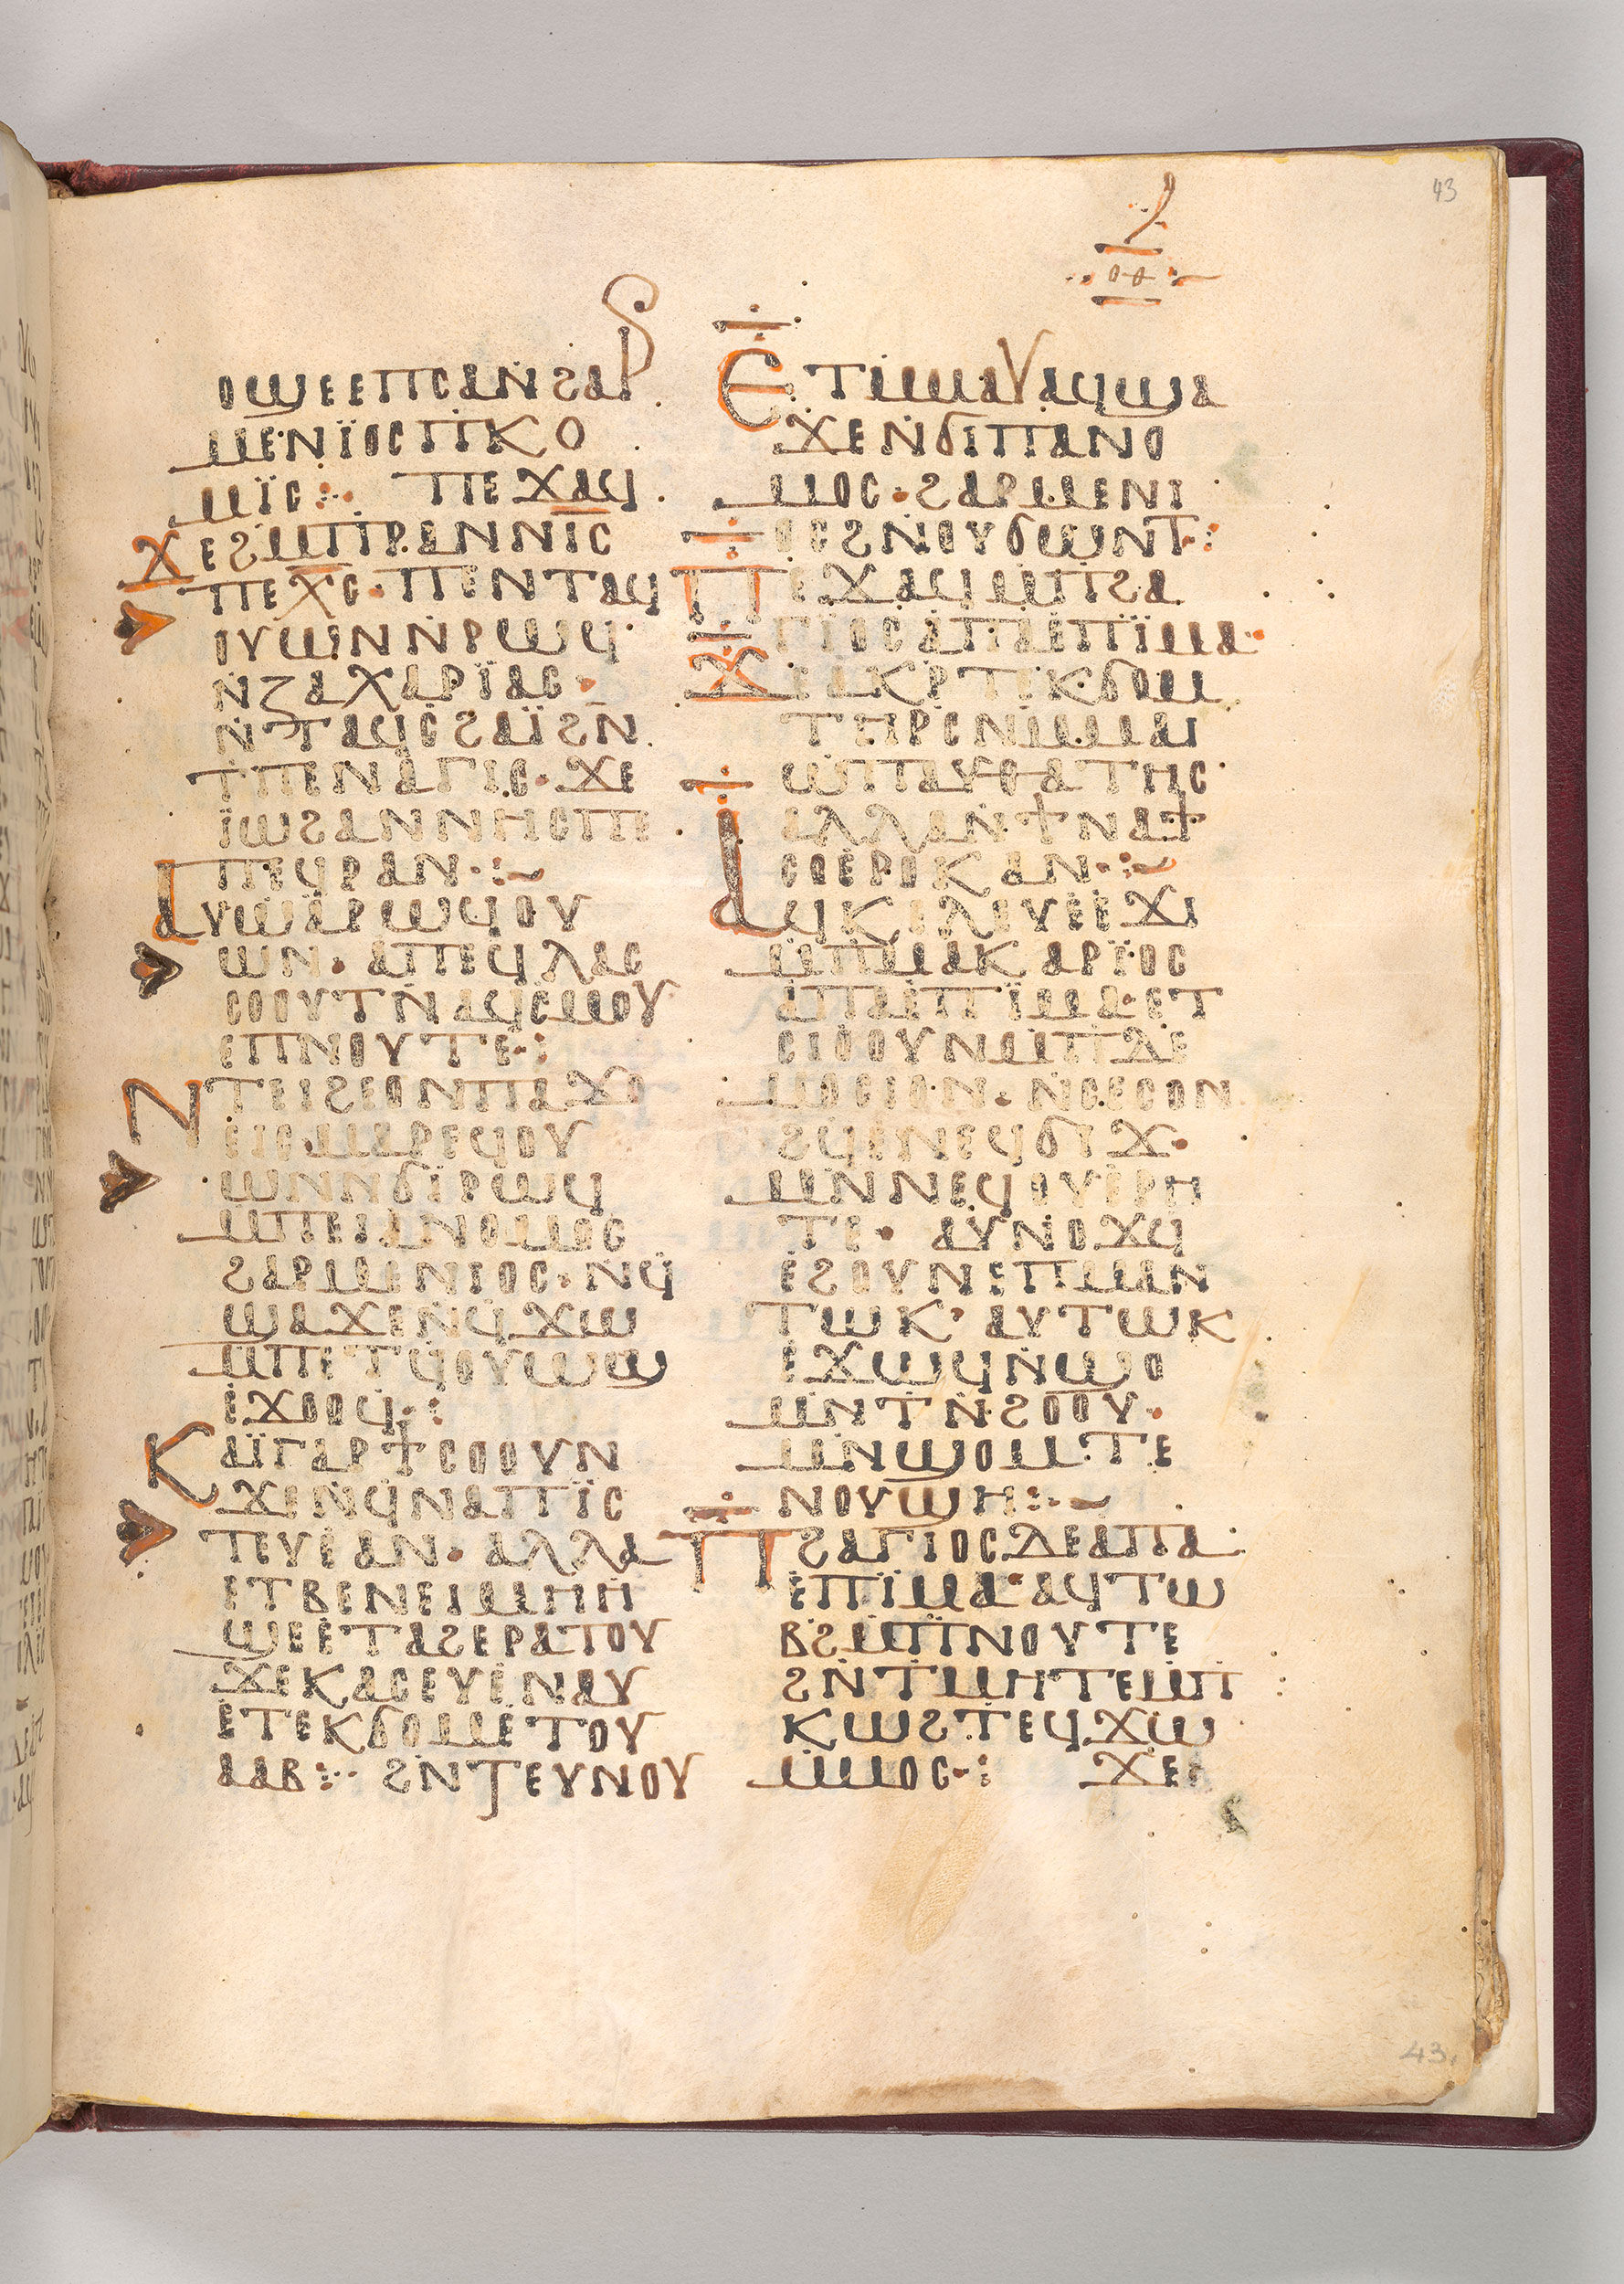 43
ⲟⲑ
ⲟϣⲉⲉⲡⲥⲁⲛϩⲁⲣ
ⲙⲉⲛⲓ̈ⲟⲥⲡⲕⲟ
ⲙⲓ̈ⲥ⁘ ⲡⲉϫⲁϥ
ϫⲉϩⲙⲡⲣⲁⲛⲛⲓ̅ⲥ̅
ⲡⲉⲭ̅ⲥ̅· ⲡⲉⲛⲧⲁϥ
ⲟⲩⲱⲛⲛ̇ⲣⲱϥ
ⲛ̇ⲍⲁⲭⲁⲣⲓ̈ⲁⲥ·
ⲛ̇ⲧⲁϥⲥϩⲁⲓ̈ϩⲛ̅
ⲧⲡⲉⲛⲁⲅⲓⲥ· ϫⲉ
ⲓ̈ⲱϩⲁⲛⲛⲏⲥⲡⲉ
ⲡⲉϥⲣⲁⲛ·:~
ⲁⲩⲱⲁⲣⲱϥⲟⲩ
ⲱⲛ· ⲁⲡⲉϥⲗⲁⲥ
ⲥⲟⲟⲩⲧⲛ̇ⲁϥⲥⲙⲟⲩ
ⲉⲡⲛⲟⲩⲧⲉ·:
ⲛⲧⲉⲓϩⲉⲟⲛⲡⲁϫⲟ
ⲉⲓⲥ·ⲙⲁⲣⲉϥⲟⲩ
ⲱⲛⲛ̇ϭⲓⲣⲱϥ
ⲙⲡⲉⲓⲁⲛⲟⲙⲟⲥ
ϩⲁⲣⲙⲉⲛⲓⲟⲥ· ⲛϥ
ϣⲁϫⲉⲛ̇ϥϫⲱ
ⲙⲡⲉⲧϥⲟⲩⲱϣ
ⲉ̇ϫⲟⲟϥ·:
ⲕⲁⲓ̈ⲅⲁⲣϯⲥⲟⲟⲩⲛ
ϫⲉⲛ̇ϥⲛⲁⲡⲓ̈ⲥ
ⲧⲉⲩⲉⲁⲛ· ⲁⲗⲗⲁ
ⲉⲧⲃⲉⲛⲉⲓⲙⲏⲏ
ϣⲉⲉⲧⲁϩⲉⲣⲁⲧⲟⲩ
ϫⲉⲕⲁⲥⲉⲩⲉⲛⲁⲩ
ⲉⲧⲉⲕϭⲟⲙⲉⲧⲟⲩ
ⲁⲁⲃ⁘ ϩⲛⲧⲉⲩⲛⲟⲩ
ⲉⲧⲙⲙⲁⲩⲁϥϣⲁ
ϫⲉⲛ̇ϭⲓⲡⲁⲛⲟ
ⲙⲟⲥ· ϩⲁⲣⲙⲉⲛⲓ
ⲟⲥϩⲛⲟⲩϭⲱⲛⲧ:
ⲡⲉϫⲁϥⲙⲡϩⲁ
ⲅⲓⲟⲥⲁⲡⲁⲉⲡⲓ̈ⲙⲁ·
ϫⲉⲁⲕⲣⲧⲉⲕϭⲟⲙ
ⲧⲏⲣⲥⲛⲙ̇ⲙⲁⲓ
ⲱⲡⲁⲩⲑⲁⲧⲏⲥ
ⲁⲗⲗⲁⲛϯⲛⲁϯ
ⲥⲟⲉⲣⲟⲕⲁⲛ·:~
ⲁϥⲕⲉⲗⲉⲩⲉⲉ̇ϫⲓ
ⲙⲡⲙⲁⲕⲁⲣⲓ̈ⲟⲥ
ⲁⲡⲁⲉⲡⲓ̈ⲙⲁ·ⲉⲧ
ⲥⲓⲟⲟⲩⲛⲙⲡⲇⲉ
ⲙⲟⲥⲓⲟⲛ· ⲛ̇ⲥⲉⲥⲟⲛ
ϩϥⲉⲛⲉϥϭⲓϫ·
ⲙⲛⲛⲉϥⲟⲩⲉⲣⲏ
ⲧⲉ· ⲁⲩⲛⲟϫϥ
ⲉ̇ϩⲟⲩⲛⲉⲡⲙⲁⲛ
ⲧⲱⲕ· ⲁⲩⲧⲱⲕ
ⲉϫⲱϥⲛ̇ϣⲟ
ⲙⲛⲧⲛ̇ϩⲟⲟⲩ·
ⲙⲛϣⲟⲙ·ⲧⲉ
ⲛⲟⲩϣⲏ:·~
ⲡϩⲁⲅⲓⲟⲥⲇⲉⲁⲡⲁ
ⲉ̇ⲡⲓⲙⲁ·ⲁϥⲧⲱ
ⲃϩⲙⲡⲛⲟⲩⲧⲉ
ϩⲛ̇ⲧⲙⲏⲧⲉⲙⲡ
ⲕⲱϩⲧⲉϥϫⲱ
ⲙⲙⲟⲥ·: ϫⲉ
43